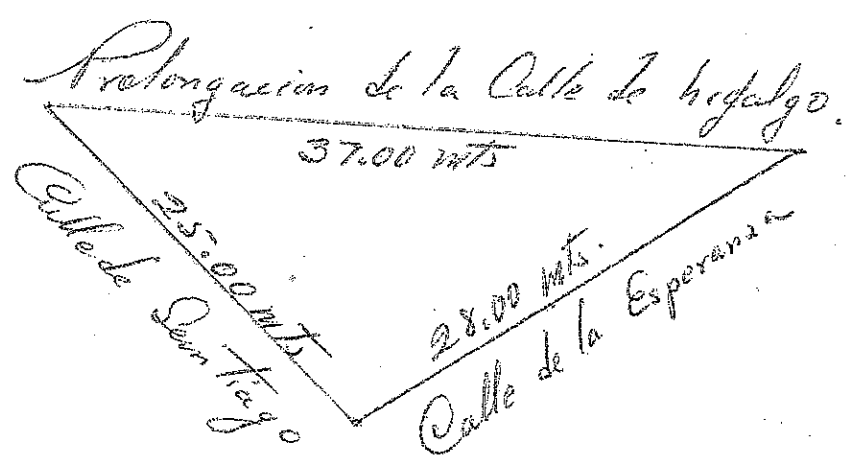 Prolongacion de la Calle de hidalgo.
37.00 mts
25.00 mts
Calle de Santiago
28.00 mts.
Calle de la Esperanza